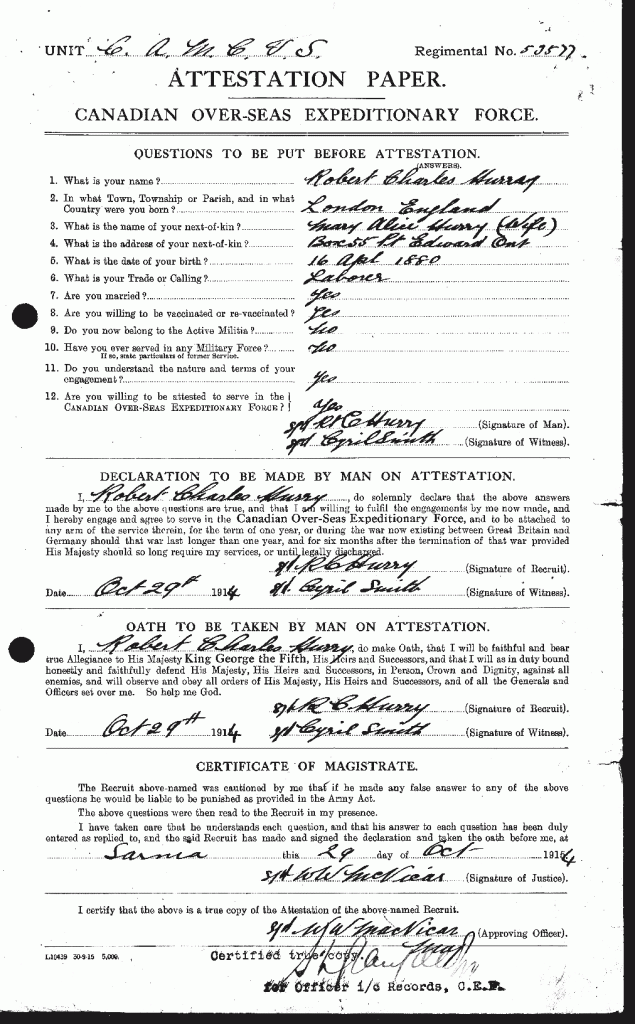 UNIT C. A. M. C. V. S. Regimental No. 53577
ATTESTATION PAPER.
CANADIAN OVER-SEAS EXPEDITIONARY FORCE.
QUESTIONS TO BE PUT BEFORE ATTESTATION.
(ANSWERS).
1. What is your name? Robert Charles Hurray
2. In what Town, Township or Parish, and in what
Country were you born? London England
3. What is the name of your next-of-kin? Mary Alice Hurry (Wife)
4. What is the address of your next-of-kin? Box 55 Pt Edward Ont
5. What is the date of your birth? 16 Apl 1880
6. What is your Trade or Calling? Laborer
7. Are you married? Yes
8. Are you willing to be vaccinated or re-vaccinated? Yes
9. Do you now belong to the Active Militia? No
10. Have you ever served in any Military Force? No
If so, state particulars of former Service.
11. Do you understand the nature and terms of your
engagement? Yes
12. Are you willing to be attested to serve in the
CANADIAN OVER-SEAS EXPEDITIONARY FORCE? Yes
sgd R C Hurry (Signature of Man).
sgd Cyril Smith (Signature of Witness).
DECLARATION TO BE MADE BY MAN ON ATTESTATION.
I, Robert Charles Hurry, do solemnly declare that the above answers
made by me to the above questions are true, and that I am willing to fulfil the engagements by me now made, and
I hereby engage and agree to serve in the Canadian Over-Seas Expeditionary Force, and to be attached to
any arm of the service therein, for the term of one year, or during the war now existing between Great Britain and
Germany should that war last longer than one year, and for six months after the termination of that war provided
His Majesty should so long require my services, or until legally discharged.
sgd R C Hurry (Signature of Recruit).
Date Oct 29th 1914 sgd Cyril Smith (Signature of Witness).
OATH TO BE TAKEN BY MAN ON ATTESTATION.
I, Robert Charles Hurry, do make Oath, that I will be faithful and bear
true Allegiance to His Majesty King George the Fifth, His Heirs and Successors, and that I will as in duty bound
honestly and faithfully defend His Majesty, His Heirs and Successors, in Person, Crown and Dignity, against all
enemies, and will observe and obey all orders of His Majesty, His Heirs and Successors, and of all the Generals and
Officers set over me. So help me God.
sgd R C Hurry (Signature of Recruit).
Date Oct 29th 1914 sgd Cyril Smith (Signature of Witness).
CERTIFICATE OF MAGISTRATE.
The Recruit above-named was cautioned by me that if he made any false answer to any of the above
questions he would be liable to be punished as provided in the Army Act.
The above questions were then read to the Recruit in my presence.
I have taken care that he understands each question, and that his answer to each question has been duly
entered as replied to, and the said Recruit has made and signed the declaration and taken the oath before me, at
Sarnia this 29 day of Oct 1914
sgd W W McVicar (Signature of Justice).
I certify that the above is a true copy of the Attestation of the above-named Recruit.
sgd W W MacVicar (Approving Officer).
Maj
L.10439 30-9-15 5,000. Certified true copy.
for Officer i/c Records, C.E.F.